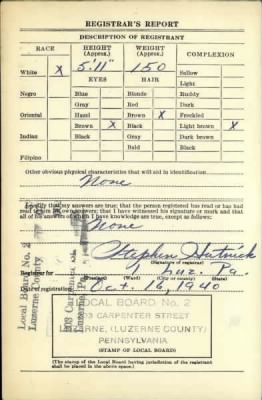 REGISTRAR'S REPORT
DESCRIPTION OF REGISTRANT
RACE HEIGHT (Approx.) WEIGHT (Approx.) COMPLEXION
White X 5'11" 150 Sallow
EYES HAIR Light
Negro Blue Blonde Ruddy
Gray Red Dark
Oriental Hazel Brown X Freckled
Brown X Black Light brown X
Indian Black Gray Dark brown
Bald Black
Filipino
Other obvious physical characteristics that will aid in identification
None
I certify that my answers are true; that the person registered has read or has had
read to him his own answers; that I have witnessed his signature or mark and that
all of his answers of which I have knowledge are true, except as follows:
None
Stephen
(Signature of registrar)
Registrar for Luz. Pa.
(Precinct) (Ward) (City or county) (State)
Date of registration Oct. 16, 1940
Local Board No. 2
Luzerne County
203 Carpenter St.
Luzerne, Pa.
LOCAL BOARD No. 2
203 CARPENTER STREET
LUZERNE, (LUZERNE COUNTY)
PENNSYLVANIA
(STAMP OF LOCAL BOARD)
(The stamp of the Local Board having jurisdiction of the registrant shall be
placed in the above space.)